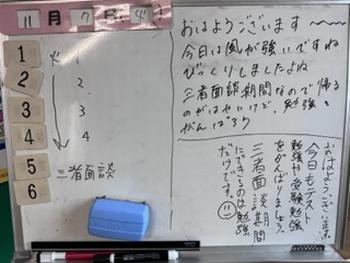 11月7日(火)
1
2
3
4
5
6
火 1
2
3
4
三者面談
おはようございます
今日は風が強いですね
びっくりしましたよね
三者面談期間なので帰る
のがはやいけど、勉強を
がんばろう
おはようございます。
今日もテスト
勉強や受験勉強
をがんばりましょう
三者面談期間
にできるのは勉強
だけです。